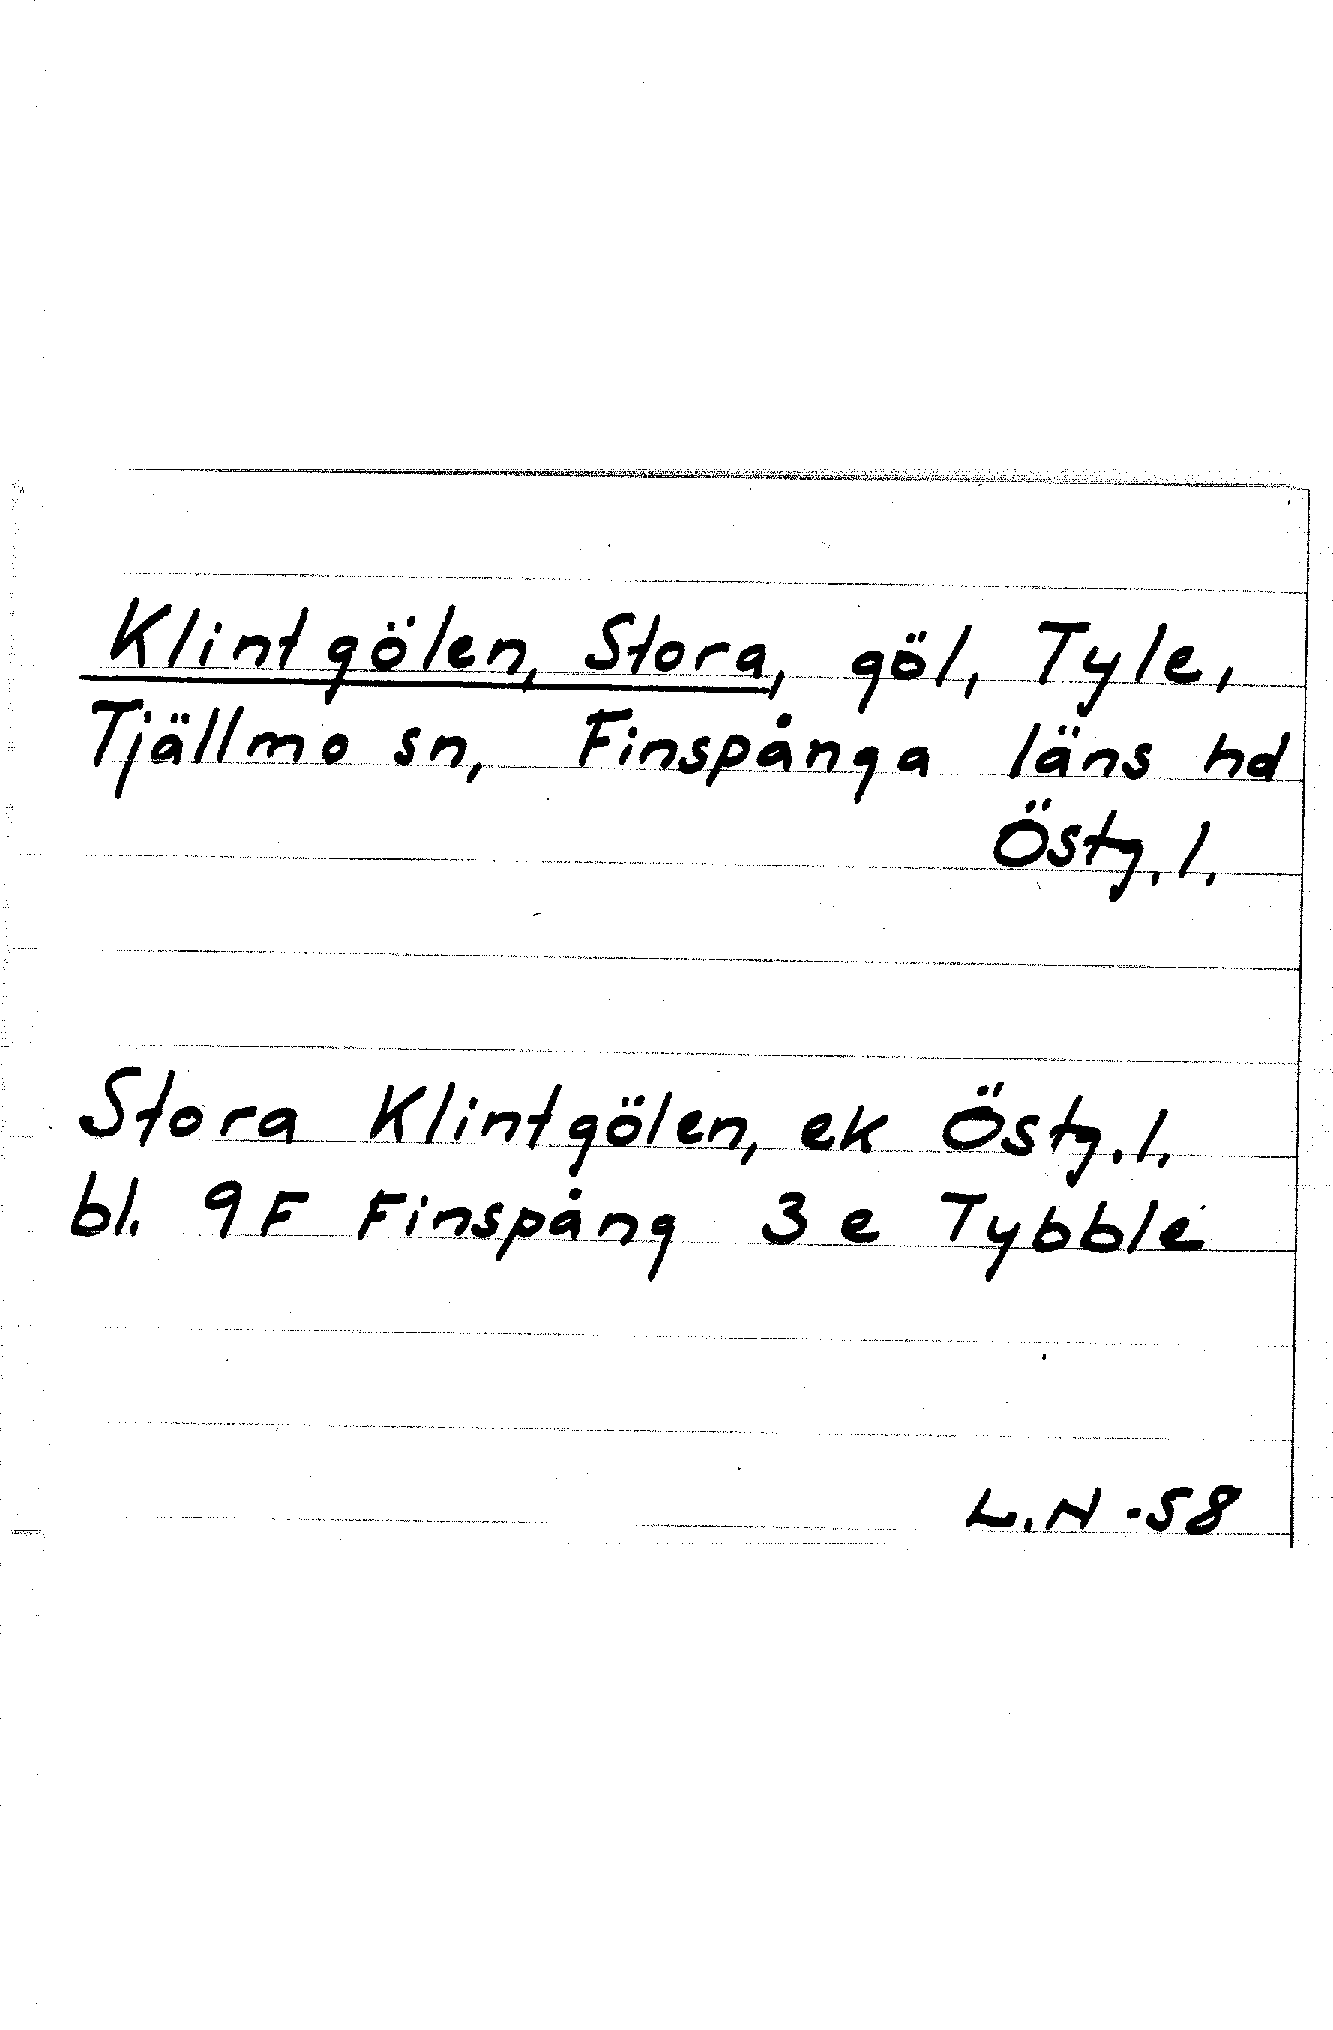 Klintgölen, Stora, göl, Tyle,
Tjällmo sn, Finspånga läns hd
Östg. l.
Stora Klintgölen, ek Östg. l.
bl. 9F Finspång 3e Tybble
L.N -58